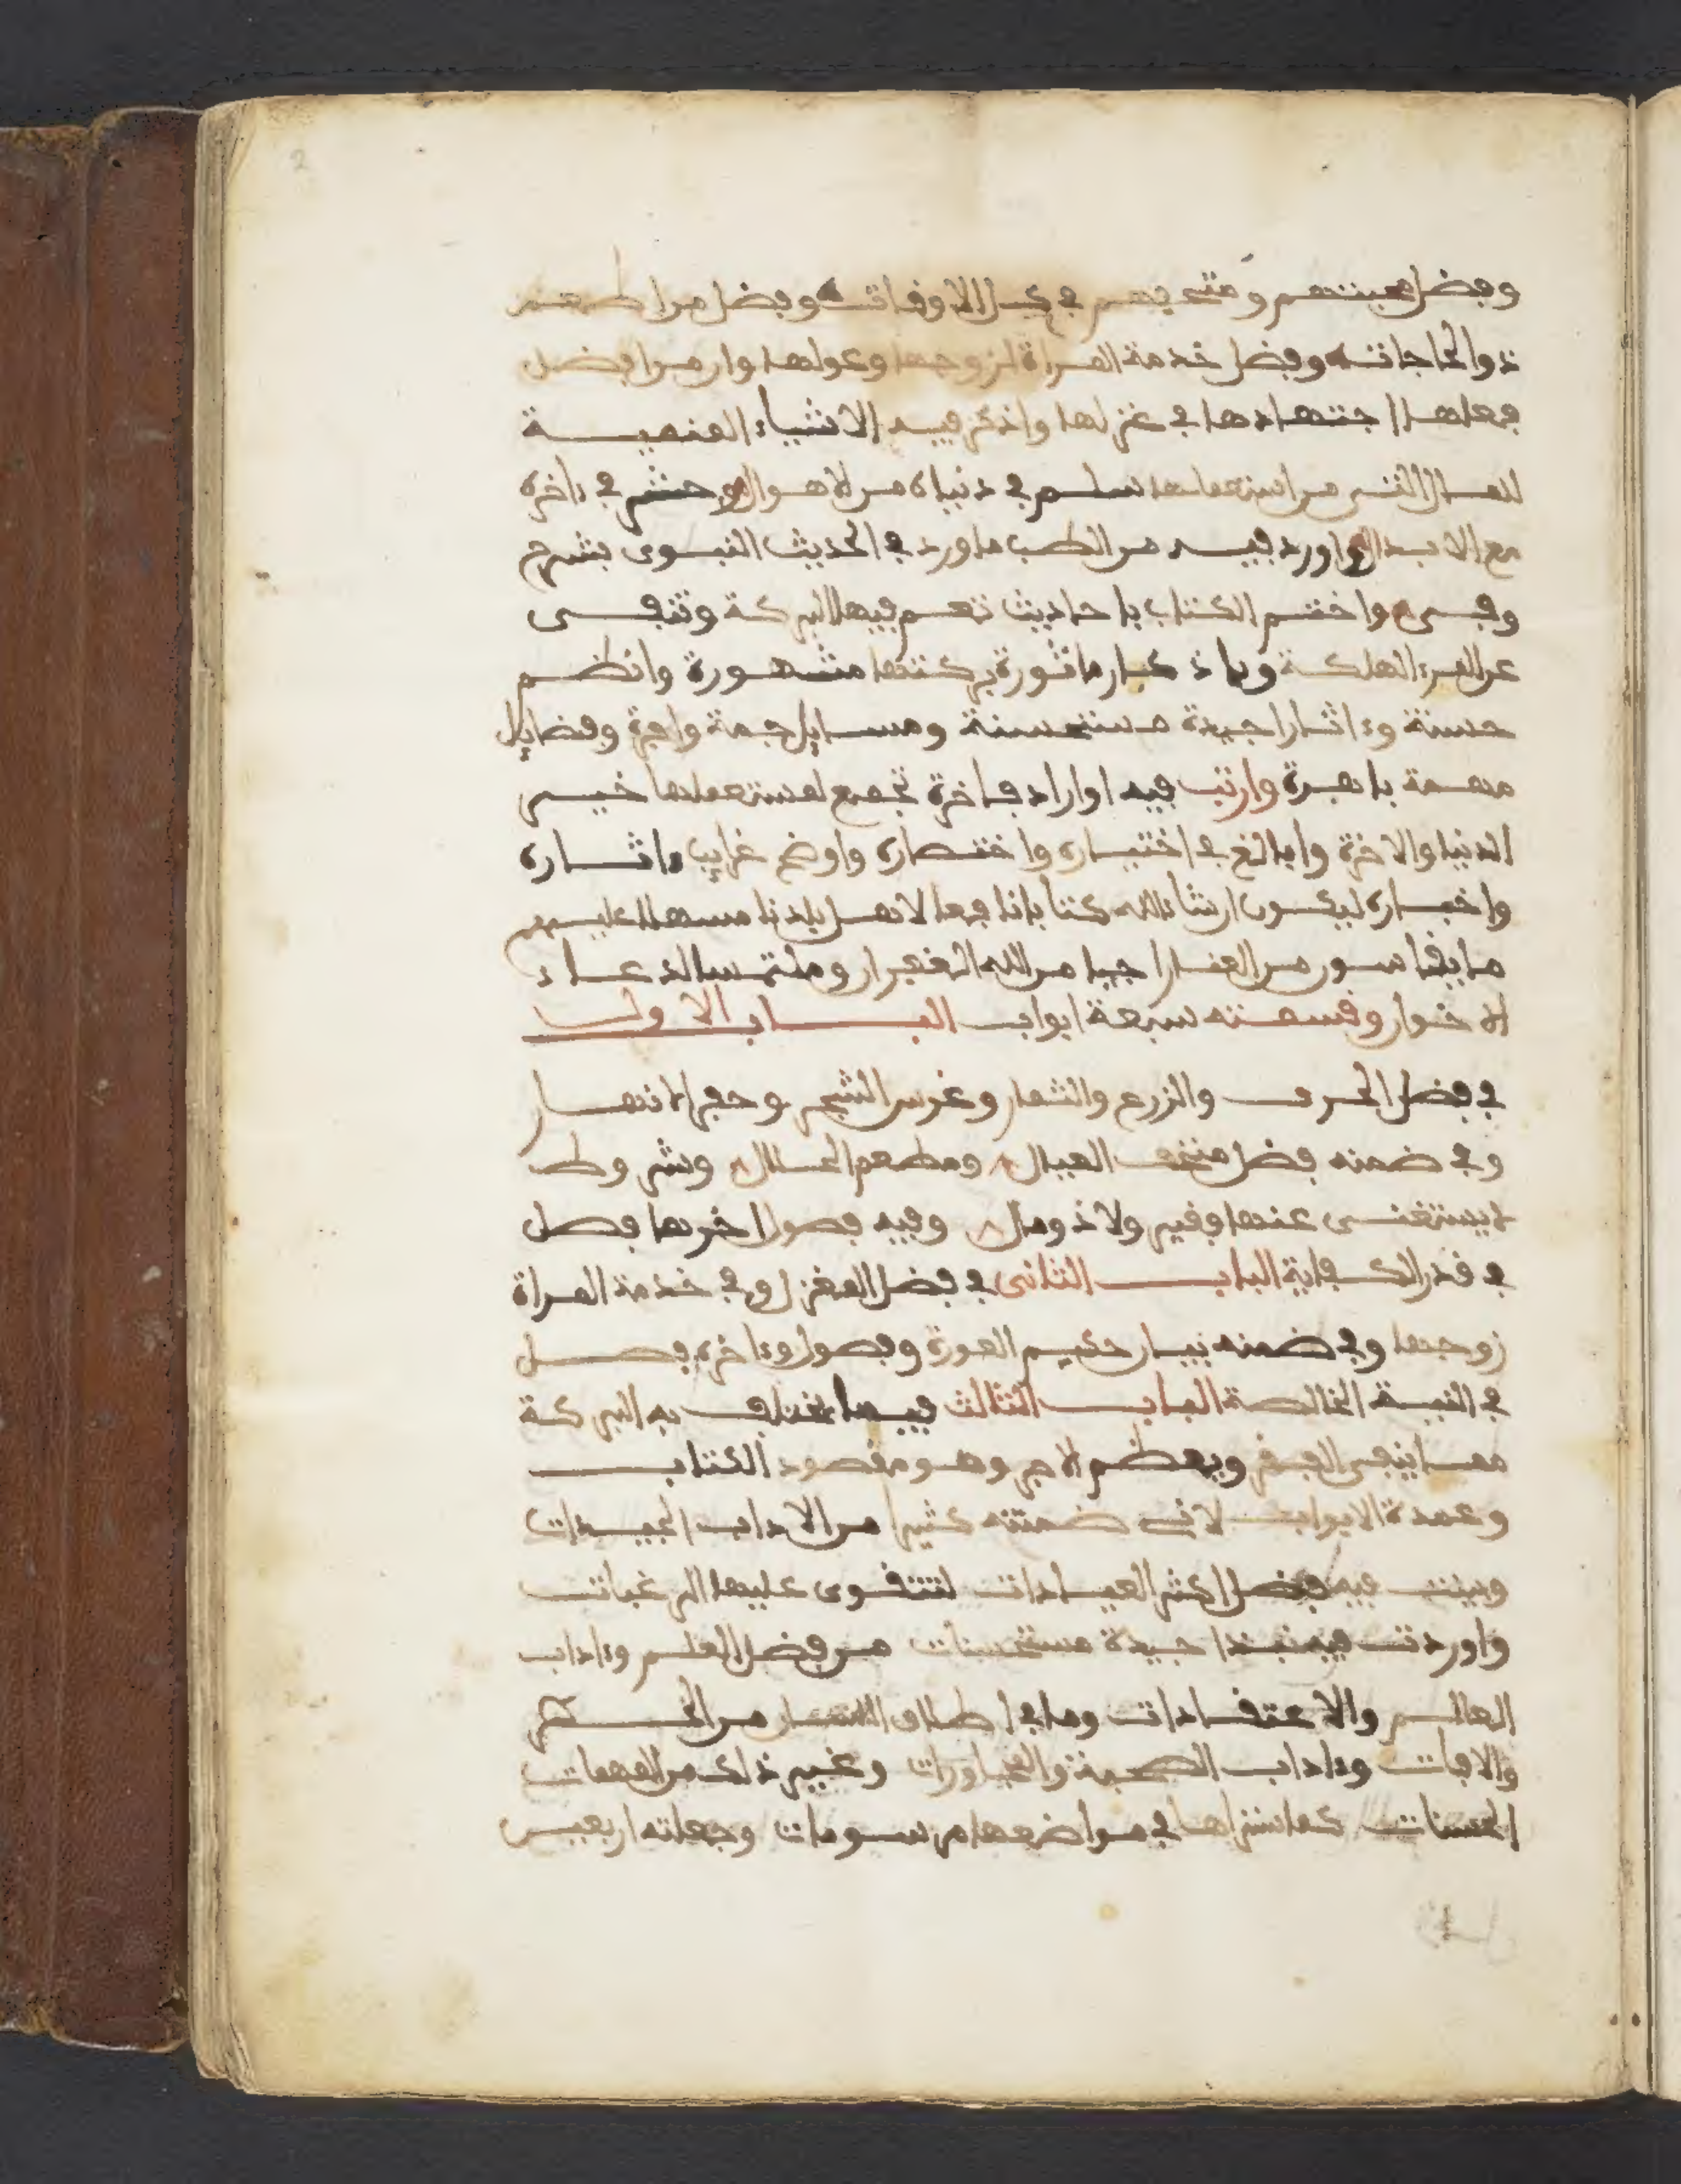 وفضل محبتهم ومتعتهم في كل الاوقات وفضل من اطعم
ذوا الحاجات وفضل خدمة المراة لزوجها وعولها وان من افضل
فعلها اجتهادها في غزلها واذكر فيه الاشياء المنمية
للمال التي من استعملها سلم في دنياه من الاهوال وحشر في ءاخره
مع الابدال واورد فيه من الطب ما ورد في الحديث النبوي بشرح
واختم الكتاب باحاديث تعم فيها البركة وتنفى
عن المرء الهلكة وباذكار ماثورة بركتها مشهورة وانظم
حسنة وءاثارا جيدة مستحسنة ومسايل جمة وافرة وفضايل
مهمة باهرة وارتب فيه اوراد فاخرة تجمع لمستعملها خير
الدنيا والاخرة وابالغ في اختياره واختصاره واوضح غرايب ءاثاره
واخباره ليكون ان شاء الله كتابا نافعا لاهل بلدنا مسهلا عليهم
ما يقاسون من العنا راجيا من الله الغفران وملتمسا الدعاء
الاخوان وقسمته سبعة ابواب الباب الاول
في فضل الحرف والزرع والثمار وغرس الشجر وحفر الانهار
وفي ضمنه فضل العيال ومطعم الحلال وشروط
لا يستغنى عنها فقير ولا ذو مال وفيه فصول اخرها فصل
في قدر الكفاية الباب الثاني في فضل المغزل وفي خدمة المراة
زوجها وفي ضمنه بيان حكم العورة وفصول وءاخره فصل
في النية الخالصة الباب الثالث فيما تجتلب به البركة
مما ينفى الفقر ويعظم الاجر وهو مقصود الكتاب
وعمدة الابواب لاني ضمنته كثيرا من الاداب الجيدات
وبينت فيه فضل اكثر العبادات لتتقوى عليها الرغبات
واوردت فيه نبذا جيدة مستحسنات من فضل العلم وءاداب
العالم والاعتقادات وما في اطلاق اللسان من الخطر
والافات وءاداب الصحبة والمجاورات وغير ذلك من المهمات
الحسنات كما ستراها في مواضعها مرسومات وجعلته اربعين